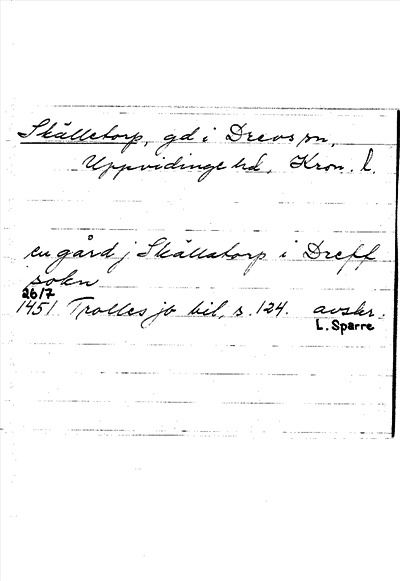 Skälletorp, gd i Drevs sn,
Uppvidinge hd, Kron. l.
en gård j Skällatorp i Dreff
sokn
26/7
1451 Trolles jb bil, s. 124. avskr.
L. Sparre